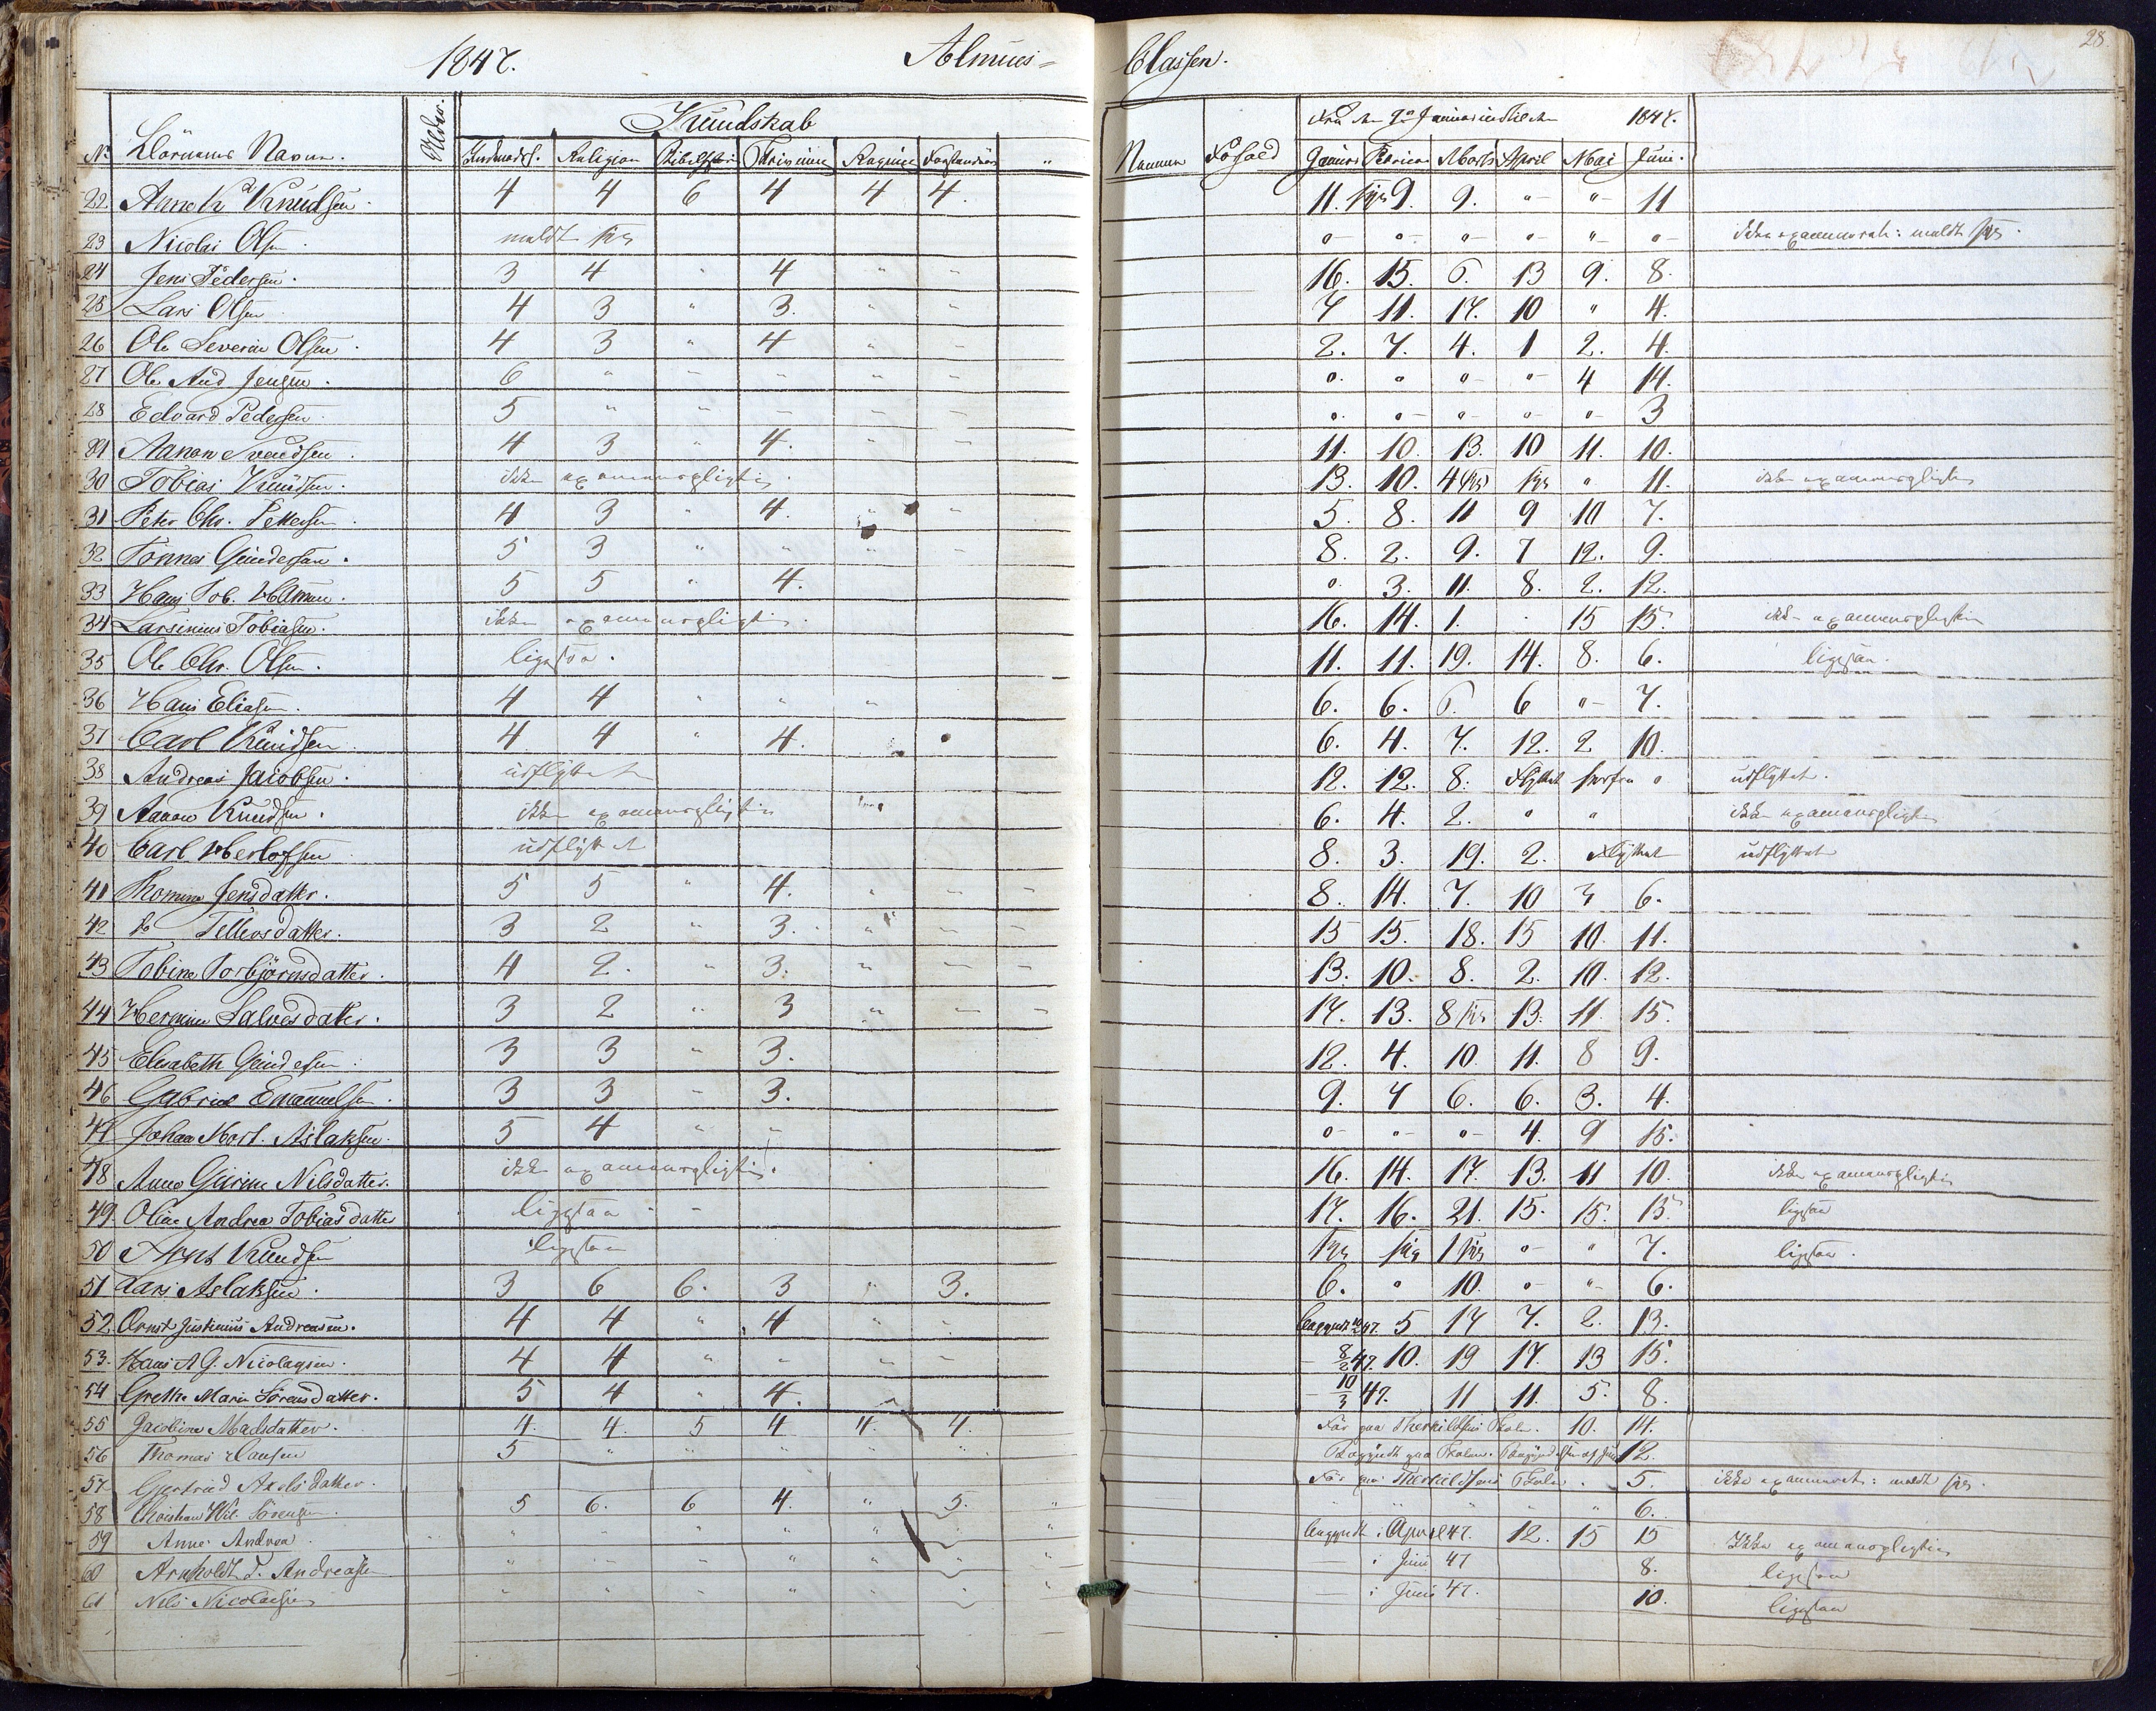 1847. Almues= Classen. 28.
Fra den 9de Januar indtil den 1847.
Kundskab
No Börnenes Navne. Alder. Indenadsl. Religion Bibelhist Skrivning Regning Forstandsøv " Nævner Forhold Januar Februar Marts April Mai Juni.
22 Knudsen. 4 4 6 4 4 4. 11. syg 9. 9. " " 11
23 Nicolai Olsen. meldt syg " " " " " " ikke examineret: meldt syg.
24 Jens Pedersen. 3 4 " 4 " " 16. 15. 6. 13 9. 8.
25 Lars Olsen 4 3 " 3. " " 7 11. 17. 10 " 4.
26 Ole Severin Olsen. 4 3 " 4 " " 2. 7. 4. 1 2. 4.
27 Ole And Jensen. 6 " " " " " " " " " 4 14.
28 Edvard Pedersen 5 " " " " " " " " " " 3
29 Aanon Svendsen. 4 3 " 4. " " 11. 10. 13. 10 11. 10.
30 Tobias Knudsen. ikke examensgligtig. 13. 10. 4 syg syg " 11. ikke examenspligtig
31 Peter Chr. Pettersen 4 3 " 4. " " 5. 8. 11 9 10 7.
32 Tönnes Gundersen. 5 3 " " " " 8. 2. 9. 7 12. 9.
33 Hans Tob. 5 5 " 4. " 3. 11. 8. 2. 12.
34 Larsinius Tobiasen. ikke examenspligtig. 16. 14. 1. . 15 15. ikke examenspligtig
35 Ole Chr. Olsen. ligesaa. 11. 11. 19. 14. 8. 6. ligesaa.
36 Hans Eliasen. 4 4 " " " 6. 6. 6. 6 " 7.
37 Carl Knudsen 4 4 " 4. 6. 4. 7. 12. 2 10.
38 Andreas Jacobsen. udflyttet 12. 12. 8. Flyttet herfra " udflyttet.
39 Aanon Knudsen. ikke examenspligtig 6. 4. 2. " " ikke examenspligtig
40 Carl Herlofsen udflyttet 8. 3. 19. 2. Flyttet udflyttet
41 Thomine Jensdatter. 5 5 " 4. " " " 8. 14. 7. 10 3 6.
42 Do Tellevsdatter. 3 2 " 3. " " " 15 15. 18. 15 10. 11.
43 Tobine Torbjörnsdatter. 4 2. " 3. " " " 13. 10. 8. 2. 10. 12.
44 Hermine Salvesdatter. 3 2 " 3 " " " 17. 13. 8 syg 13. 11. 15.
45 Elisabeth Gundersen. 3 3 " 3. 12. 4. 10. 11. 8 9.
46 Gabriel Emanuelsen. 3 3 " 3. 9. 7 6. 6. 3. 4.
47 Johan Mort. Aslaksen. 5 4 " " " " " 4. 9 15.
48 Anne Gurine Nilsdatter. ikke examenspligtig. 16. 14. 17. 13. 11 10. ikke examenspligtig
49. Oline Andrea Tobiasdatter ligesaa " " 17. 16. 21. 15. 15. 15. ligesaa
50 Knudsen ligesaa syg syg 1 syg " " 7. ligesaa.
51 Lars Aslaksen. 3 6 6. 3 " 3. 6. " 10. " " 6.
52 Ernst Justinius Andreasen. 4 4 " 4 " " begyndt 47. 5 17 7. 2. 13.
53. Hans A G. Nicolaysen. 4 4 " " " " 8/2 47. 10. 19 17. 13 15.
54 Grethe Marie Sörensdatter. 5 4 " 4. 10/3 47. 11 11. 5. 8.
55 Jacobine Madsdatter. 4. 4. 5 4 4. 4. För paa Therkildsens Skole. 10. 14.
56 Thomas Hansen 5 " " " " " Begyndt paa Skolen 12.
57 Gertrud Axelsdatter. För paa Therkildsens Skole. 5. ikke examineret: meldt syg.
58 Christian Wil. Sörensen. 5 6. 6 4. " 5. " " " " " 6.
59 Anne Andrea. " " " " " " " begyndt i April 47. 12. 15 15 Ikke examenspligtig
60 Arnholdt T. Andreasen " " " " " " " i Juni 47 8. ligesaa
61 Nils Nicolaisen " " " " " " " i Juni 47. 10. ligesaa